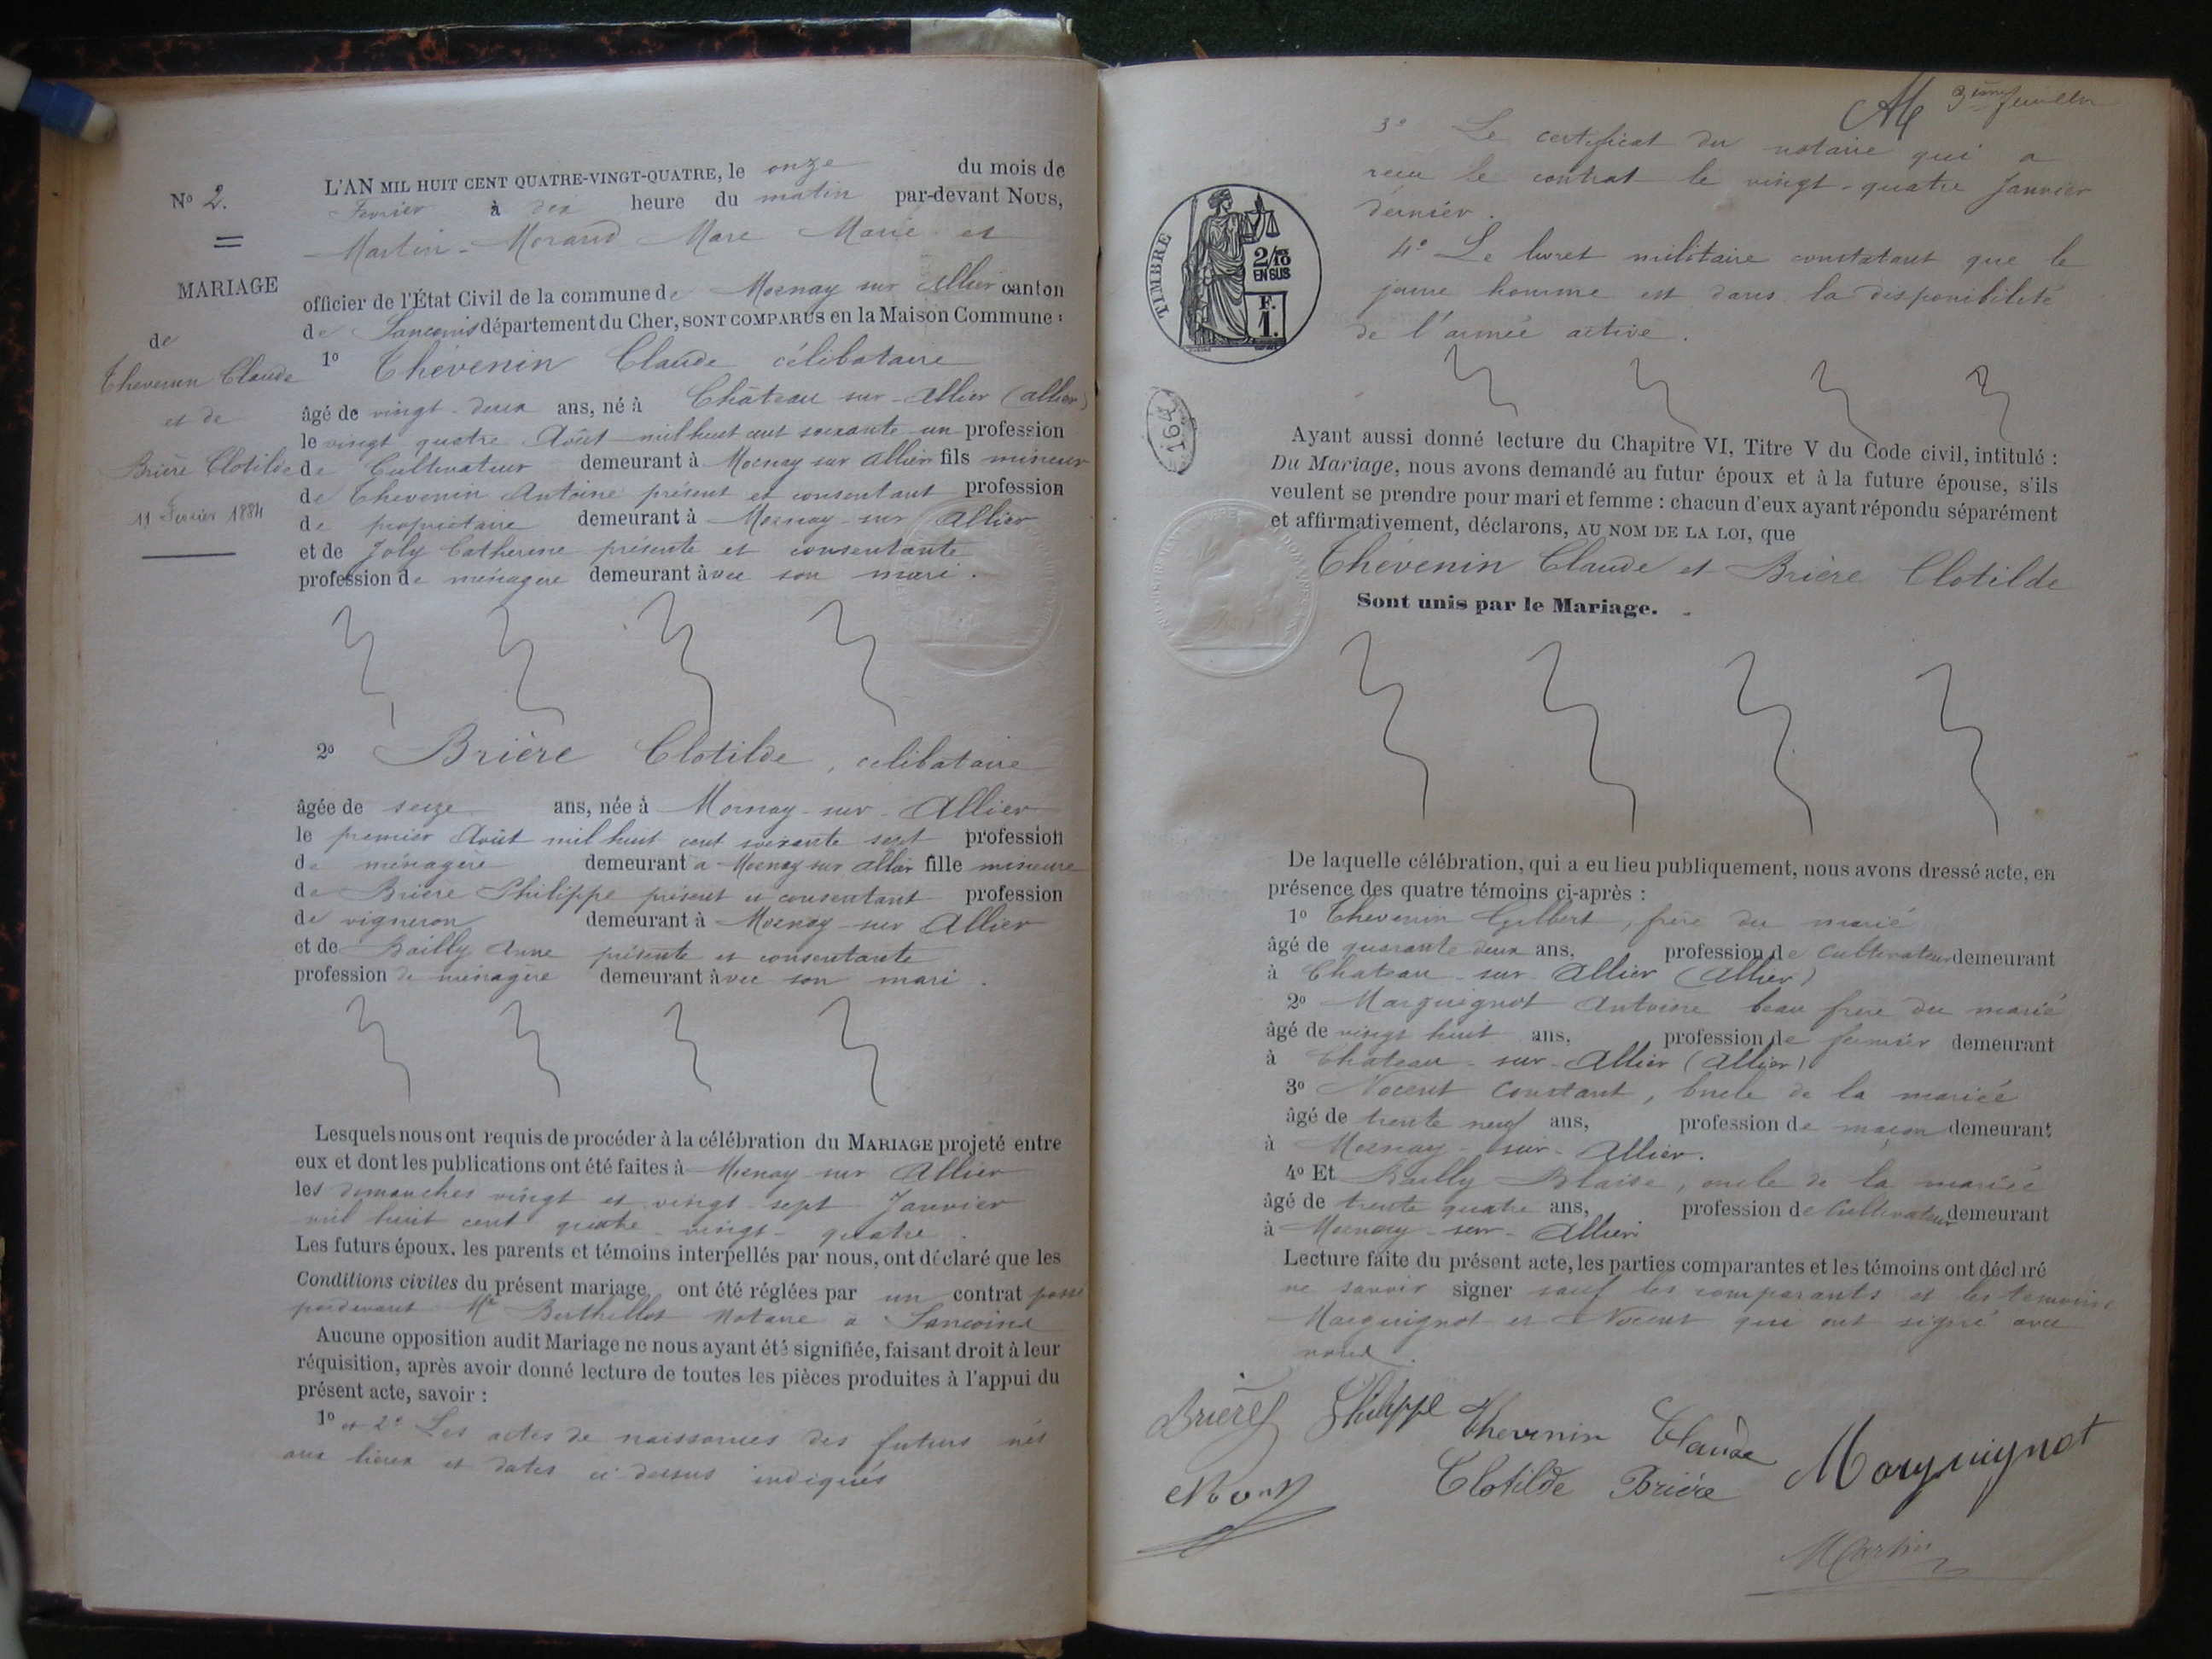 N° 2.
MARIAGE
de
Thevenin Claude
et de
Brière Clotilde
11 Fevrier 1884
L'AN MIL HUIT CENT QUATRE-VINGT-QUATRE, le onze du mois de
Fevrier à dix heure du matin par-devant Nous,
Martin-Morand Marc Marie et
officier de l'État Civil de la commune de Mornay sur Allier canton
de Sancoins département du Cher, SONT COMPARUS en la Maison Commune :
1° Thévenin Claude célibataire
âgé de vingt-deux ans, né à Château sur-Allier (allier)
le vingt quatre Août mil huit cent soixante un profession
de Cultivateur demeurant à Mornay sur Allier fils mineur
de Thevenin Antoine présent et consentant profession
de propriétaire demeurant à Mornay-sur Allier
et de Joly Catherine présente et consentante
profession de ménagère demeurant àvec son mari.
2° Brière Clotilde, célibataire
âgée de seize ans, née à Mornay-sur-Allier
le premier Août mil huit cent soixante sept profession
de ménagère demeurant à Mornay sur Allier fille mineure
de Brière Philippe présent et consentant profession
de vigneron demeurant à Mornay-sur Allier
et de Bailly Anne présente et consentante
profession de ménagère demeurant àvec son mari.
Lesquels nous ont requis de procéder à la célébration du MARIAGE projeté entre
eux et dont les publications ont été faites à Mornay sur Allier
les dimanches vingt et vingt-sept Janvier
mil huit cent quatre-vingt-quatre.
Les futurs époux. les parents et témoins interpellés par nous, ont déclaré que les
Conditions civiles du présent mariage ont été réglées par un contrat passé
pardevant Me Berthellot Notaire à Sancoins
Aucune opposition audit Mariage ne nous ayant été signifiée, faisant droit à leur
réquisition, après avoir donné lecture de toutes les pièces produites à l'appui du
présent acte, savoir :
1° et 2° Les actes de naissances des futurs nés
aux lieux et dates ci dessus indiqués
3ème feuillet
3° Le certificat du notaire qui a
reçu le contrat le vingt-quatre Janvier
dernier.
4° Le livret militaire constatant que le
jeune homme est dans la disponibilité
de l'armée active.
TIMBRE
2/10 EN SUS
F. 1.
1164
Ayant aussi donné lecture du Chapitre VI, Titre V du Code civil, intitulé :
Du Mariage, nous avons demandé au futur époux et à la future épouse, s'ils
veulent se prendre pour mari et femme : chacun d'eux ayant répondu séparément
et affirmativement, déclarons, AU NOM DE LA LOI, que
Thévenin Claude et Brière Clotilde
Sont unis par le Mariage.
De laquelle célébration, qui a eu lieu publiquement, nous avons dressé acte, en
présence des quatre témoins ci-après :
1° Thevenin Gilbert, frère du marié
âgé de quarante deux ans, profession de Cultivateur demeurant
à Chateau-sur-Allier (Allier)
2° Marguignot Antoine beau frère du marié
âgé de vingt huit ans, profession de fermier demeurant
à Chateau-sur-Allier (Allier)
3° Nocent Constant, oncle de la mariée
âgé de trente neuf ans, profession de maçon demeurant
à Mornay-sur-Allier.
4° Et Bailly Blaise, oncle de la mariée
âgé de trente quatre ans, profession de Cultivateur demeurant
à Mornay-sur-Allier
Lecture faite du présent acte, les parties comparantes et les témoins ont déclaré
ne savoir signer sauf les comparants et les temoins
Marguignot et Nocent qui ont signé avec
nous.
Brière Philippe Thevenin Claude Marguignot
Clotilde Brière
Martin